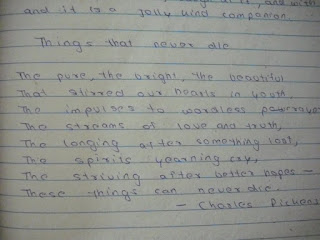 and it is a jolly kind companion.
Things that never die
The pure, the bright, the beautiful
That stirred our hearts in youth
The impulses to wordless
The streams of love and truth,
The longing after something lost,
The spirits yearning cry,
The striving after better hopes -
These things can never die.
- Charles Dickens